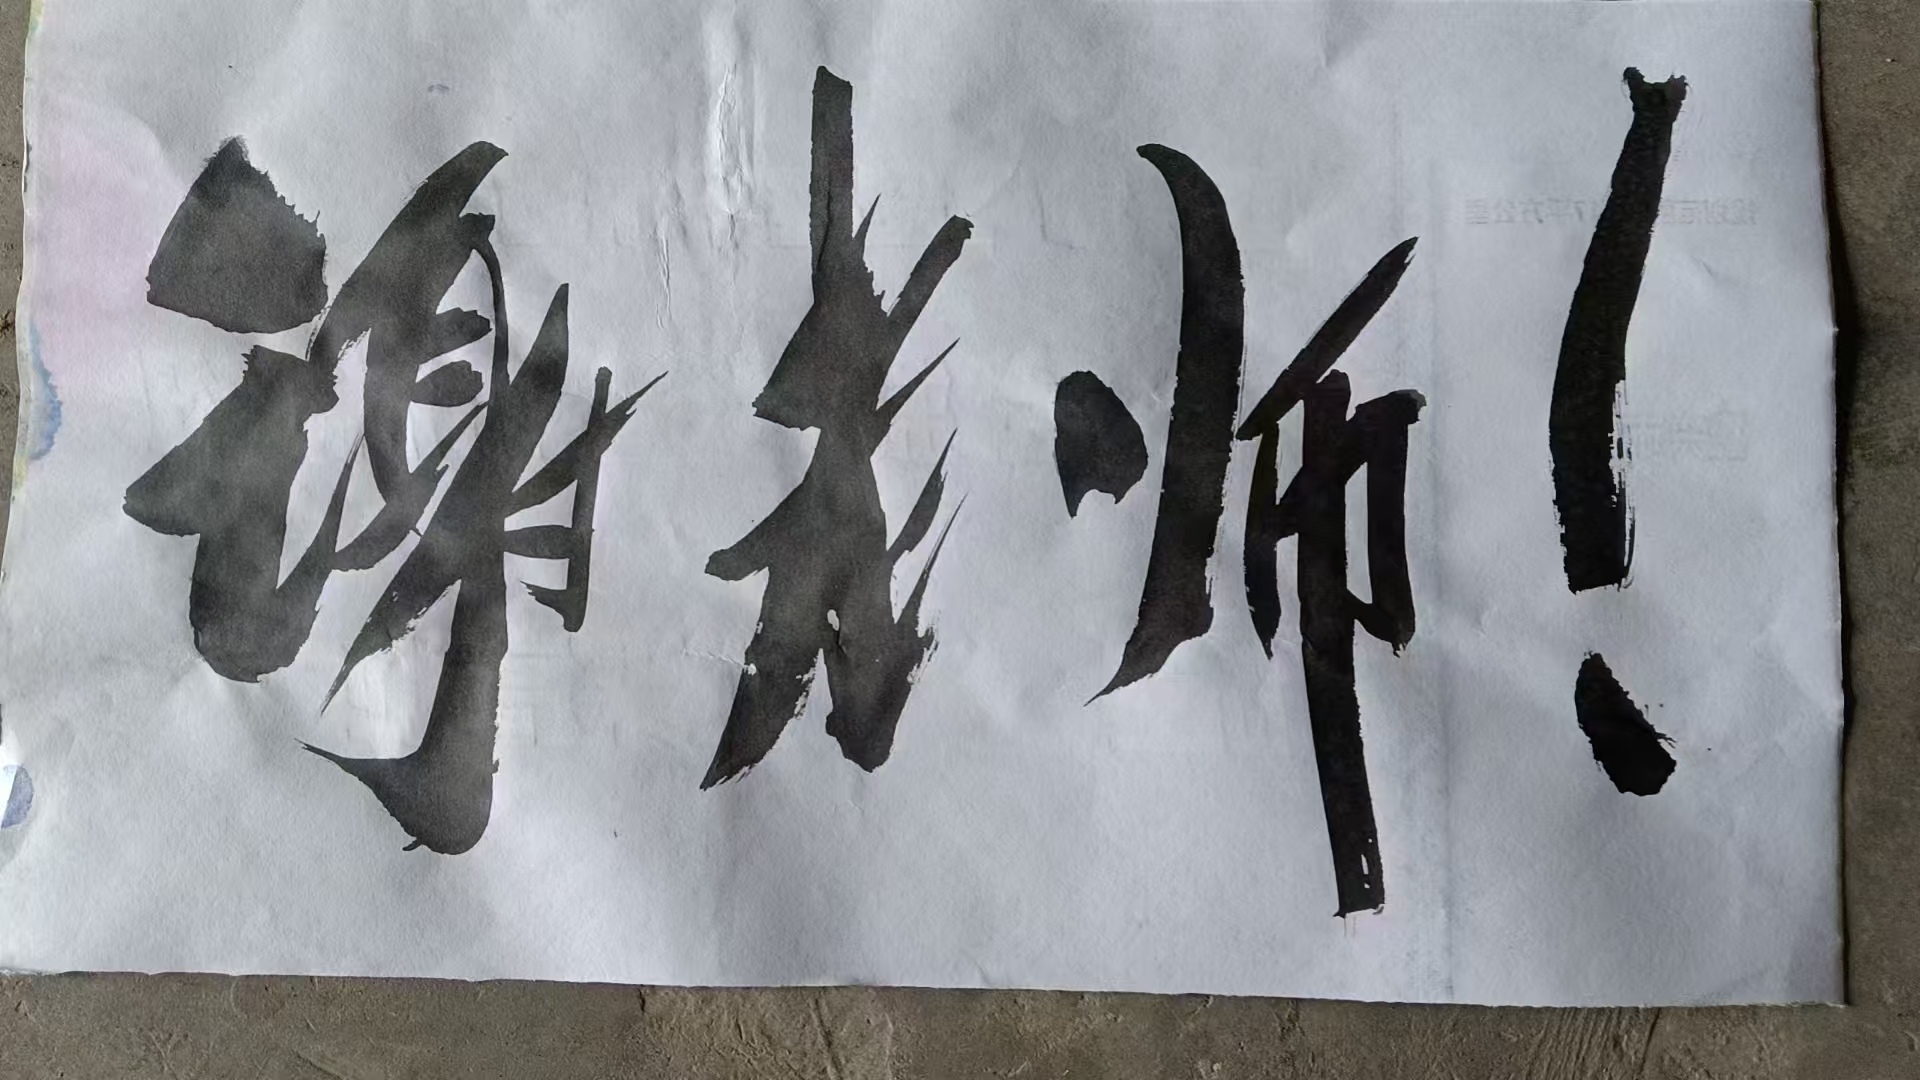 谢老师！